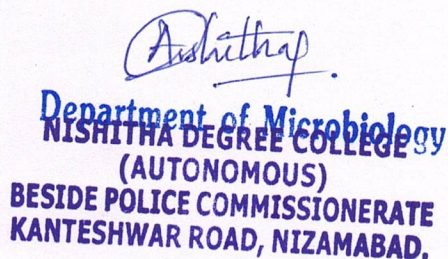 Department of Microbiology
NISHITHA DEGREE COLLEGE
(AUTONOMOUS)
BESIDE POLICE COMMISSIONERATE
KANTESHWAR ROAD, NIZAMABAD.